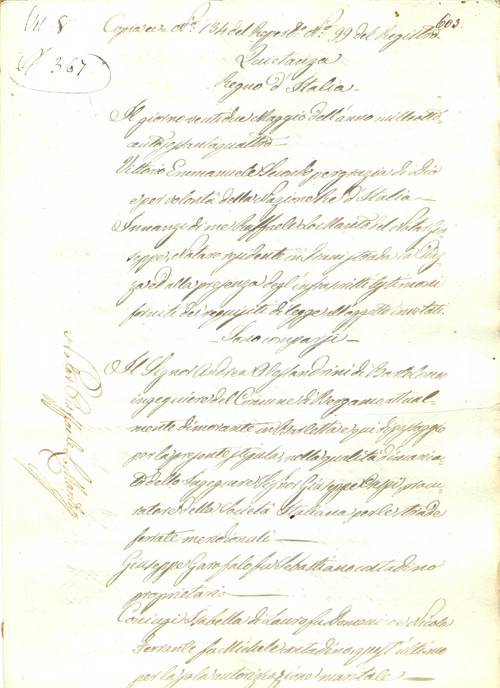 603.
Copia ec. N.° 134 del Repert.° N.° 99 del Registro
N.° 367
Quietanza
Regno d'Italia
Il giorno ventidue Maggio dell'anno milleotto
cento sessantaquattro
Vittorio Emmanuele Secondo per grazia di Dio
e per volontà della Nazione Re d'Italia
Innanzi di me Raffaele Lo Manto del Notar Giu
seppe, Notaro residente in Trani strada la Piaz
za ed alla presenza degl'infrascritti testimoni
forniti dei requisiti di legge
Sono comparsi
Il Signor Andrea Alessandrini di Bartolomeo
ingegniere del Comune di Bergamo attual
mente dimorante in Barletta e qui di passaggio
per la presente stipula, nella qualità di manda
tario dello Ingegnere Signor Giuseppe procu
ratore della Società Italiana per le strade
ferrate meridionali
Giuseppe Garofalo fu Sabattiano contadino
proprietario
Coniugi Isabella di Lauro fu Domenico e Nicola
Ferrante fu Michele contadino, quest'ultimo
per la sola autorizzazione maritale